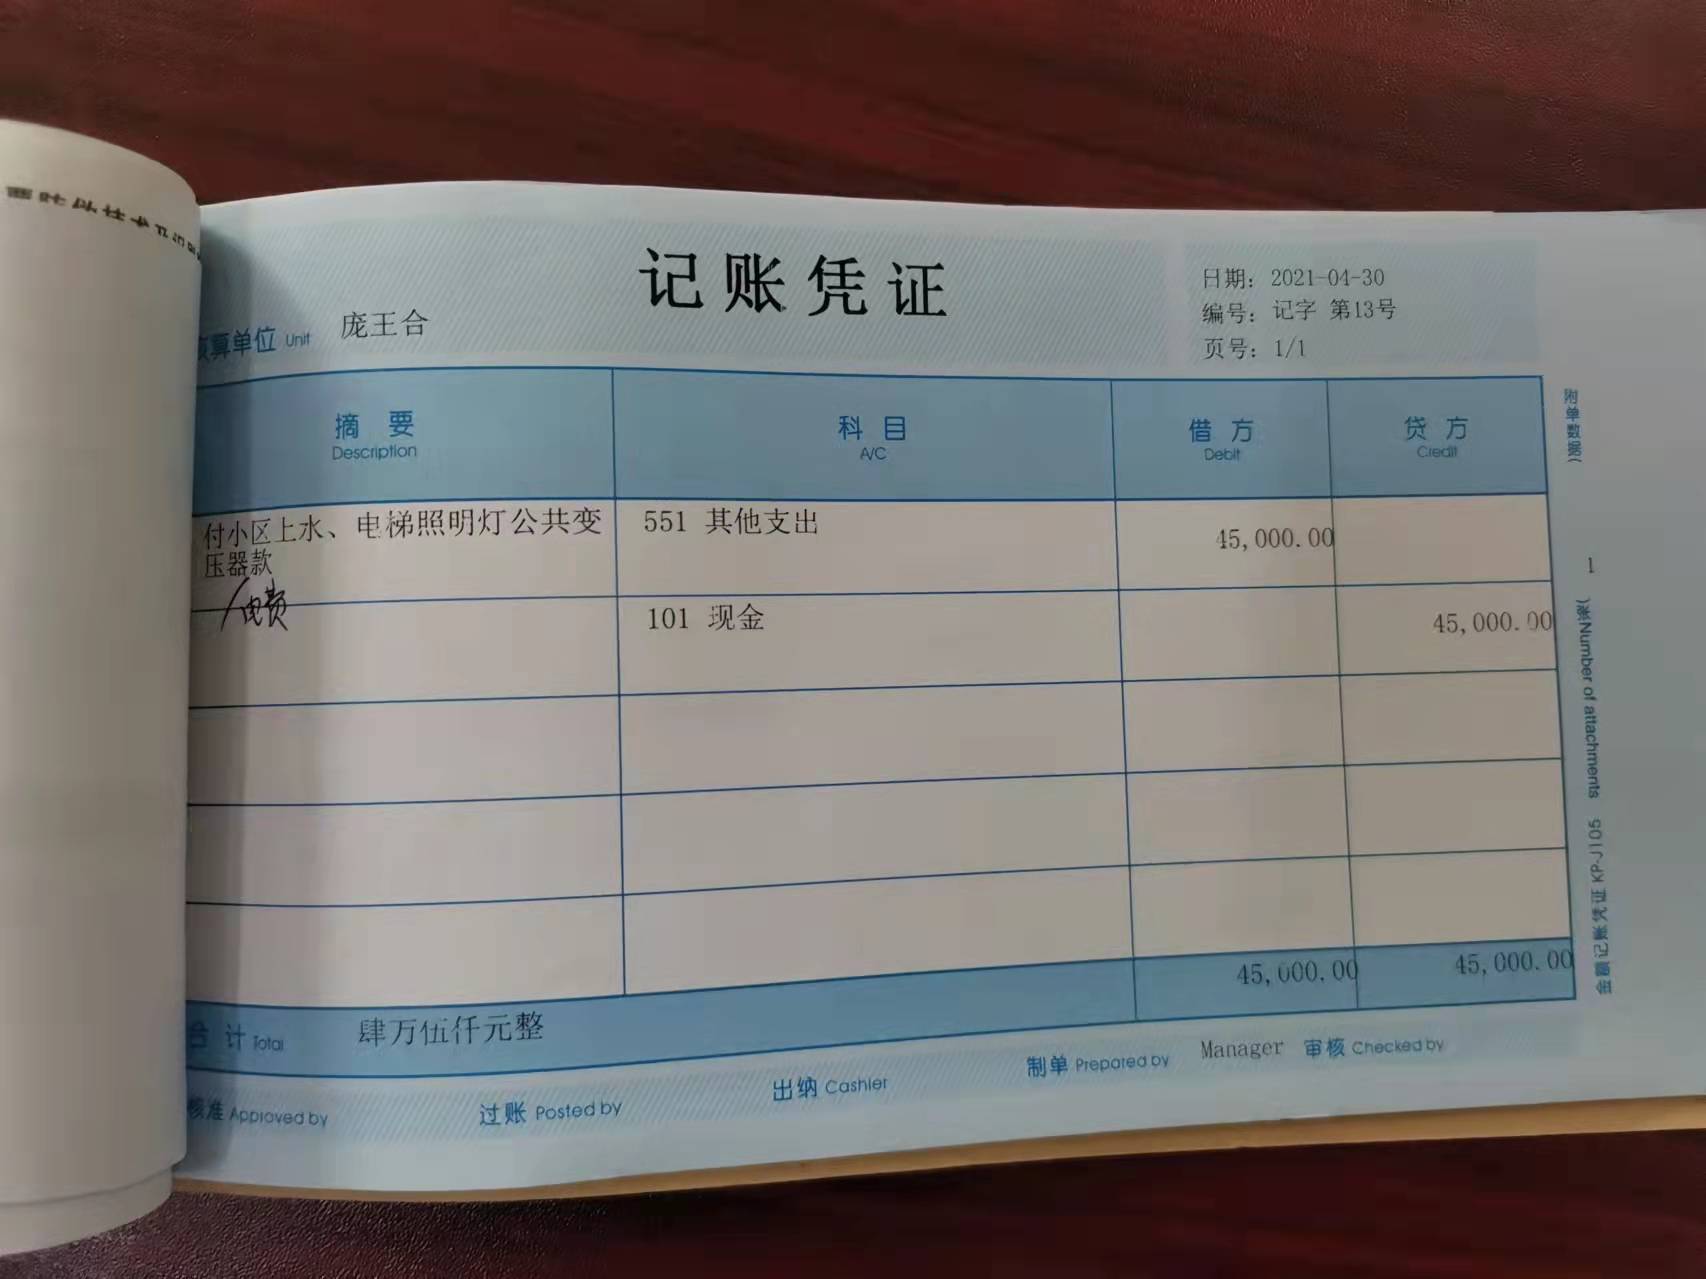 记账凭证
日期: 2021-04-30
编号: 记字 第13号
页号: 1/1
核算单位 Unit 庞王合
摘要 科目 借方 贷方
Description A/C Debit Credit
付小区上水、电梯照明灯公共变 551 其他支出 45,000.00
压器款
电费
101 现金 45,000.00
45,000.00 45,000.00
合计 Total 肆万伍仟元整
核准 Approved by 过账 Posted by 出纳 Cashier 制单 Prepared by Manager 审核 Checked by
附单数据( 1 张)Number of attachments 金额记账凭证 KP-J105